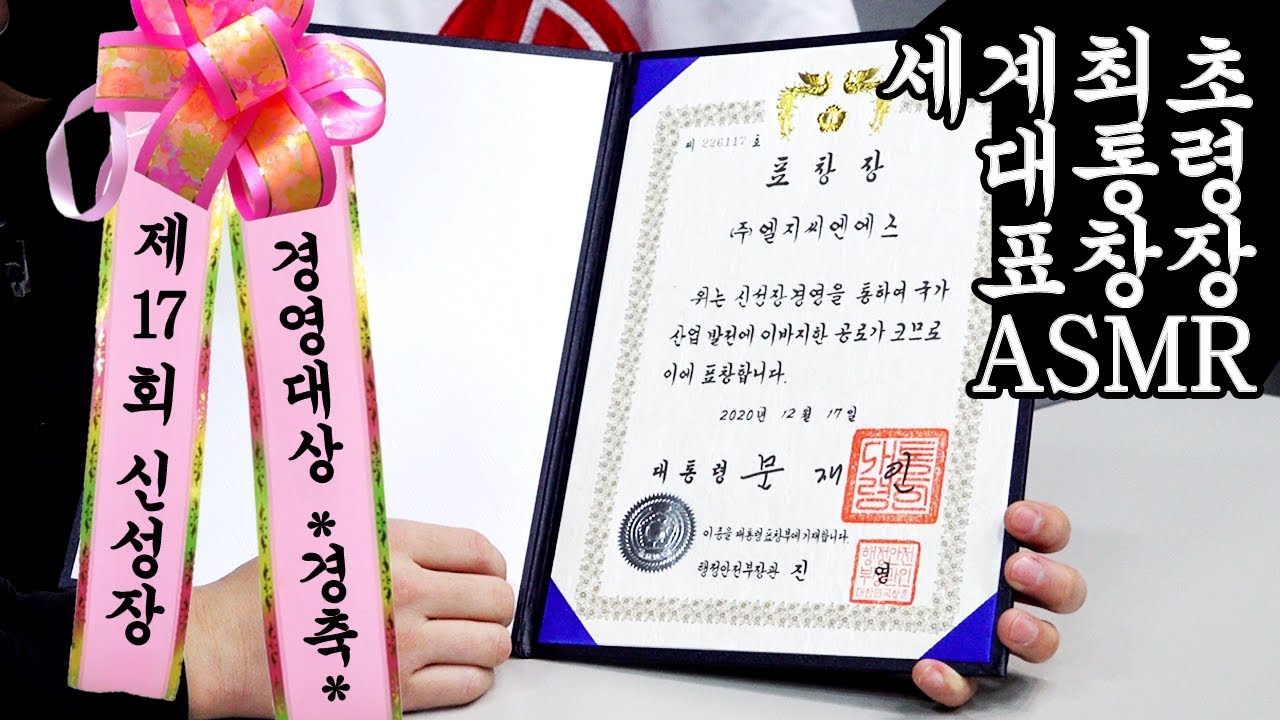 제 17 회 신성장
경영대상 *경축*
세계최초
대통령
표창장
ASMR
제 226117 호
표창장
(주)엘지씨엔에스
위는 신성장경영을 통하여 국가
산업 발전에 이바지한 공로가 크므로
이에 표창합니다.
2020년 12월 17일
대통령 문 재 인
이 증을 대통령표창부에 기재합니다.
행정안전부장관 진 영
행정안전
부장관인